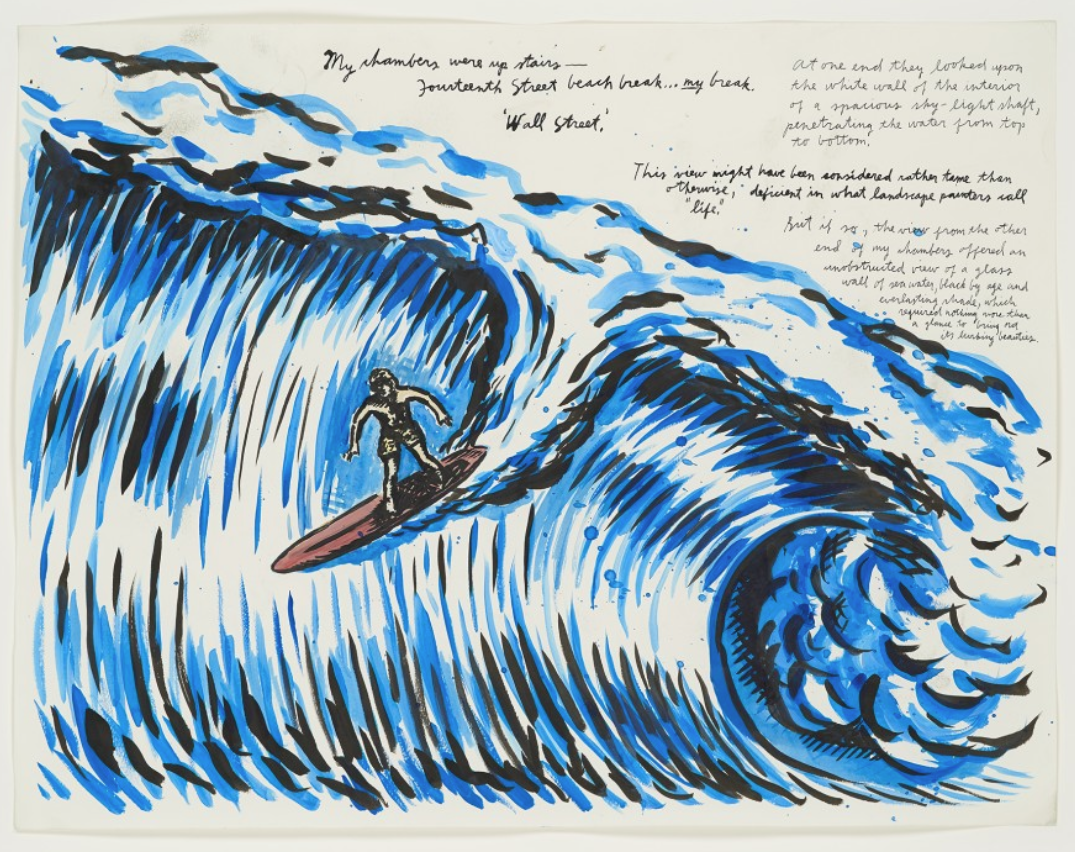 My chambers were up stairs —
Fourteenth Street beach break... my break.
'Wall Street.'
At one end they looked upon
the white wall of the interior
of a spacious sky-light shaft,
penetrating the water from top
to bottom.
This view might have been considered rather tame than
otherwise, deficient in what landscape painters call
"life."
But if so, the view from the other
end of my chambers offered an
unobstructed view of a glass
wall of sea water, black by age and
everlasting shade, which
required nothing more than
a glance to bring out
its lurking beauties.